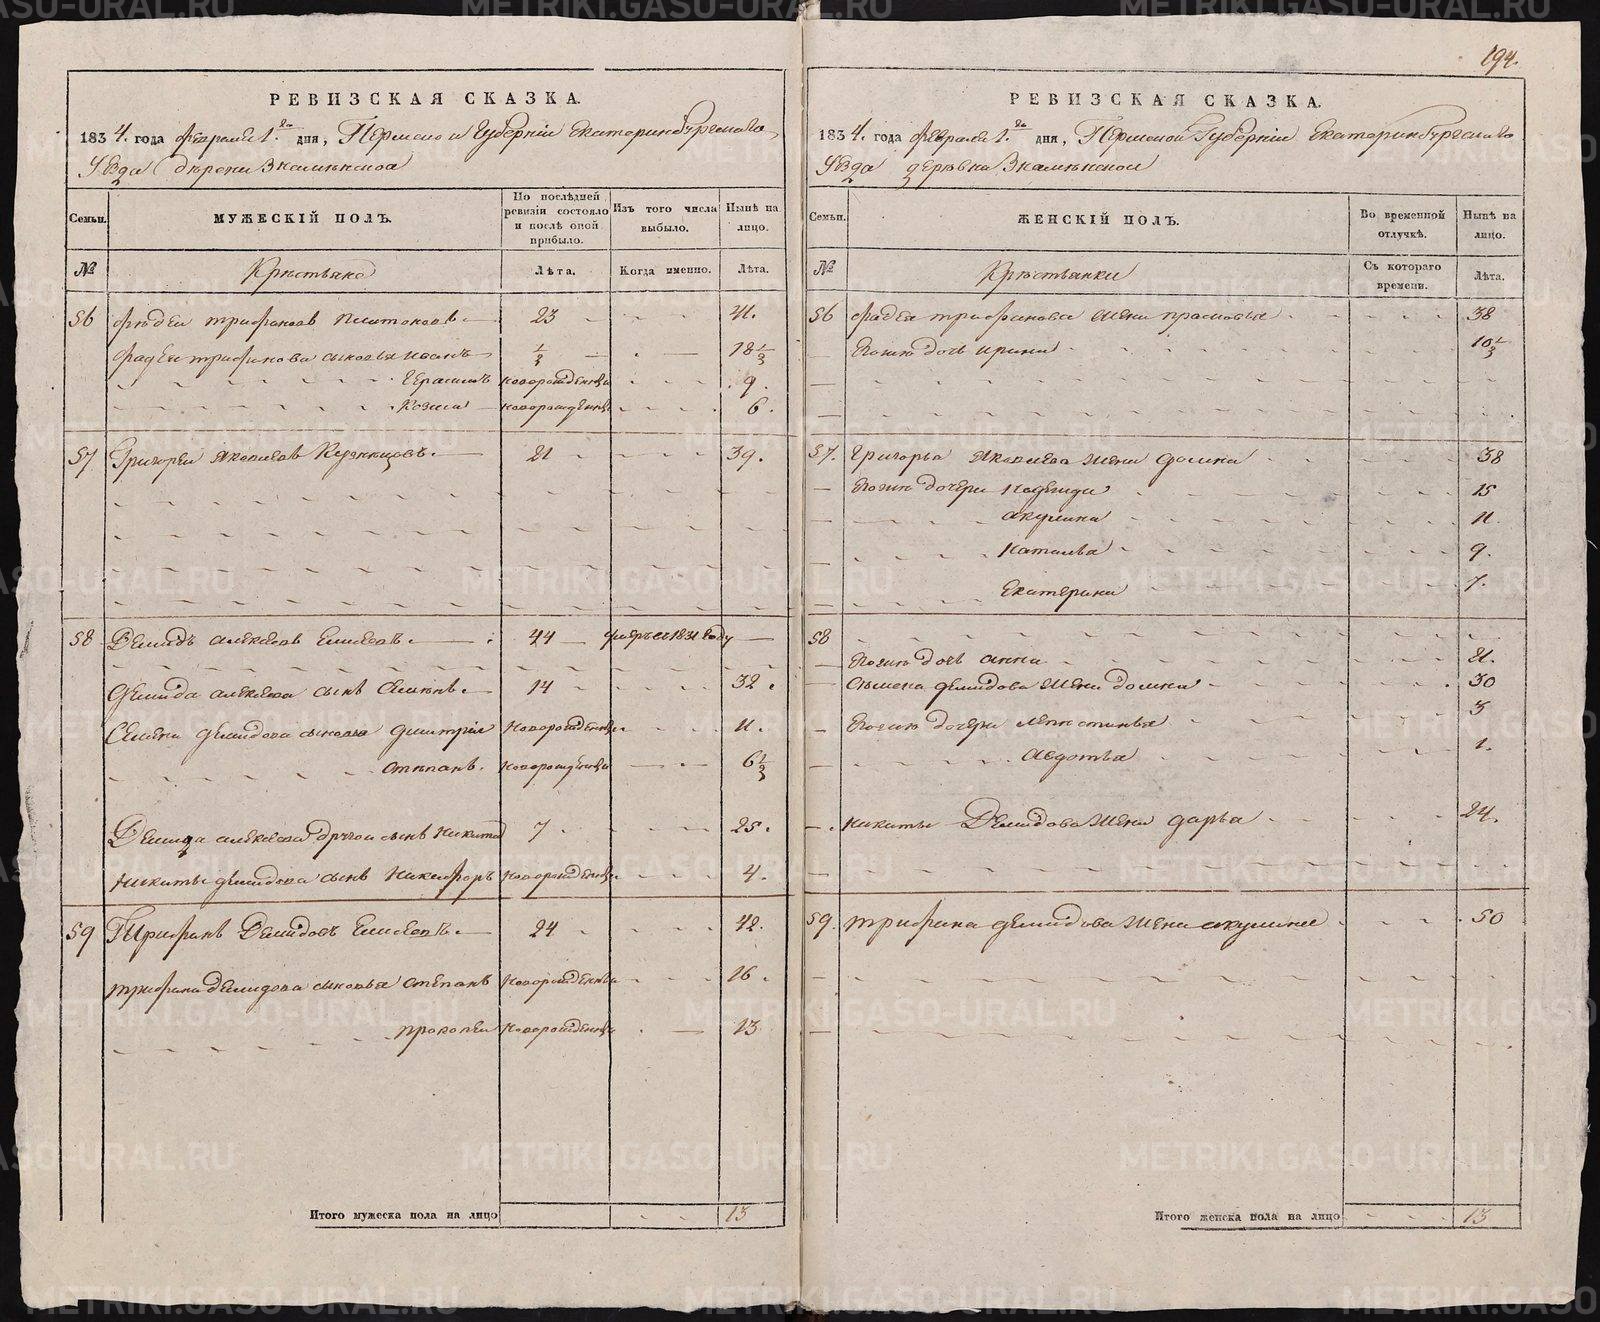 194.
РЕВИЗСКАЯ СКАЗКА.
1834. года февраля 1. го дня, Пермской Губерніи Екатеринбургскаго
Уѣзда Знаменской
Семьи. МУЖЕСКІЙ ПОЛЪ. По послѣдней ревизіи состояло и послѣ оной прибыло. Изъ того числа выбыло. Нынѣ на лицо.
№ Крестьяне Лѣта. Когда именно. Лѣта.
56 23 41.
сыновья иванъ 1/3 18 1/3
герасимъ новорожденны 9.
Козма новорожденны 6.
57 Григореи Яковлевъ Кузнецовъ. 21 39.
58 Демидъ алексеевъ Елисеевъ. 44 умре въ 1831 году
Демида алексеева сынъ Семенъ. 14 32.
Семена демидова сыновья дмитреи новорожденны 11.
степанъ. новорожденны 6 1/3
Демида алексеева другои сынъ никита 7 25.
никиты демидова сынъ никифоръ новорожденны 4.
59 Трифанъ Демидовъ Елисеевъ. 24 42.
трифана демидова сыновья степанъ новорожденны 16.
прокопеи новорожденны 13
Итого мужеска пола на лицо 13
РЕВИЗСКАЯ СКАЗКА.
1834. года февраля 1. го дня, Пермской Губерніи Екатеринбургскаго
Уѣзда деревни Знаменской
Семьи. ЖЕНСКІЙ ПОЛЪ. Во временной отлучкѣ. Нынѣ на лицо.
№ Крестьянки Съ котораго времени. Лѣта.
56 фадея трифанова жена прасковья 38
Еогожъ дочь ирина 10 1/3
57. Григорья Яковлева жена домна 38
Еогожъ дочери надежда 15
акулина 11.
наталья 9.
Екатерина 7.
58
Еогожъ дочь анна 21.
семена демидова жена домна 30
Еогожъ дочери 3
авдотья 1.
никиты Демидова жена дарья 24.
59. трифана демидова жена акулина 50
Итого женска пола на лицо 13
METRIKI.GASO-URAL.RU